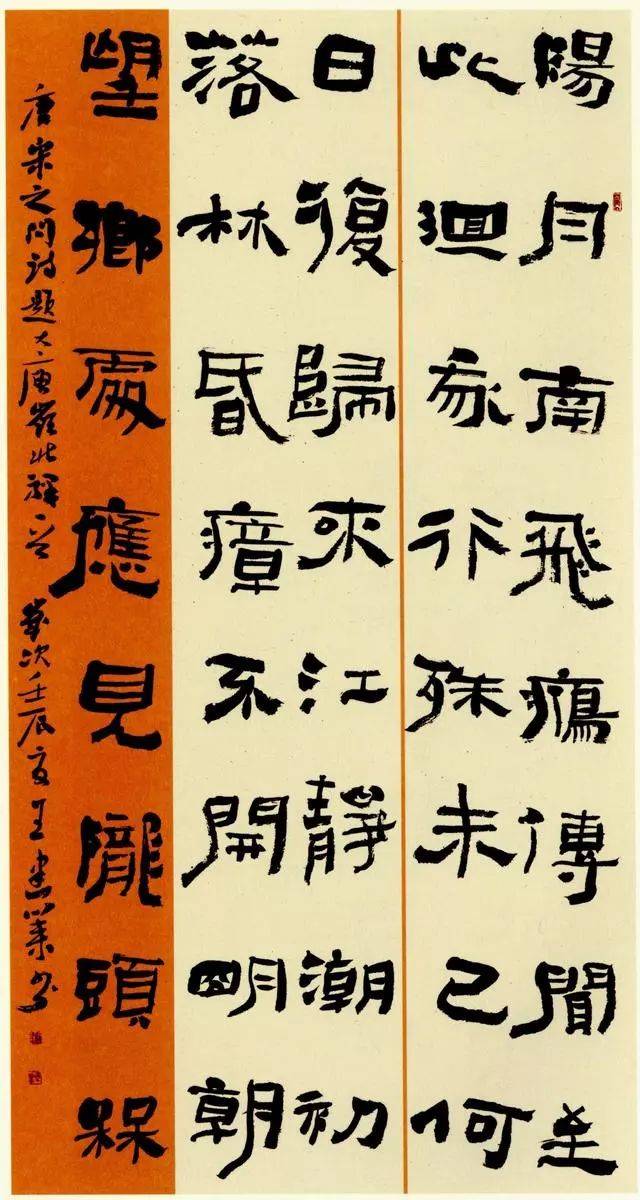 陽月南飛鴈傳聞至
此迴我行殊未已何
日復歸來江靜潮初
落林昏瘴不開明朝
望鄉處應見隴頭槑
唐宋之問詩題大庾嶺北驛一首 歲次壬辰夏王書